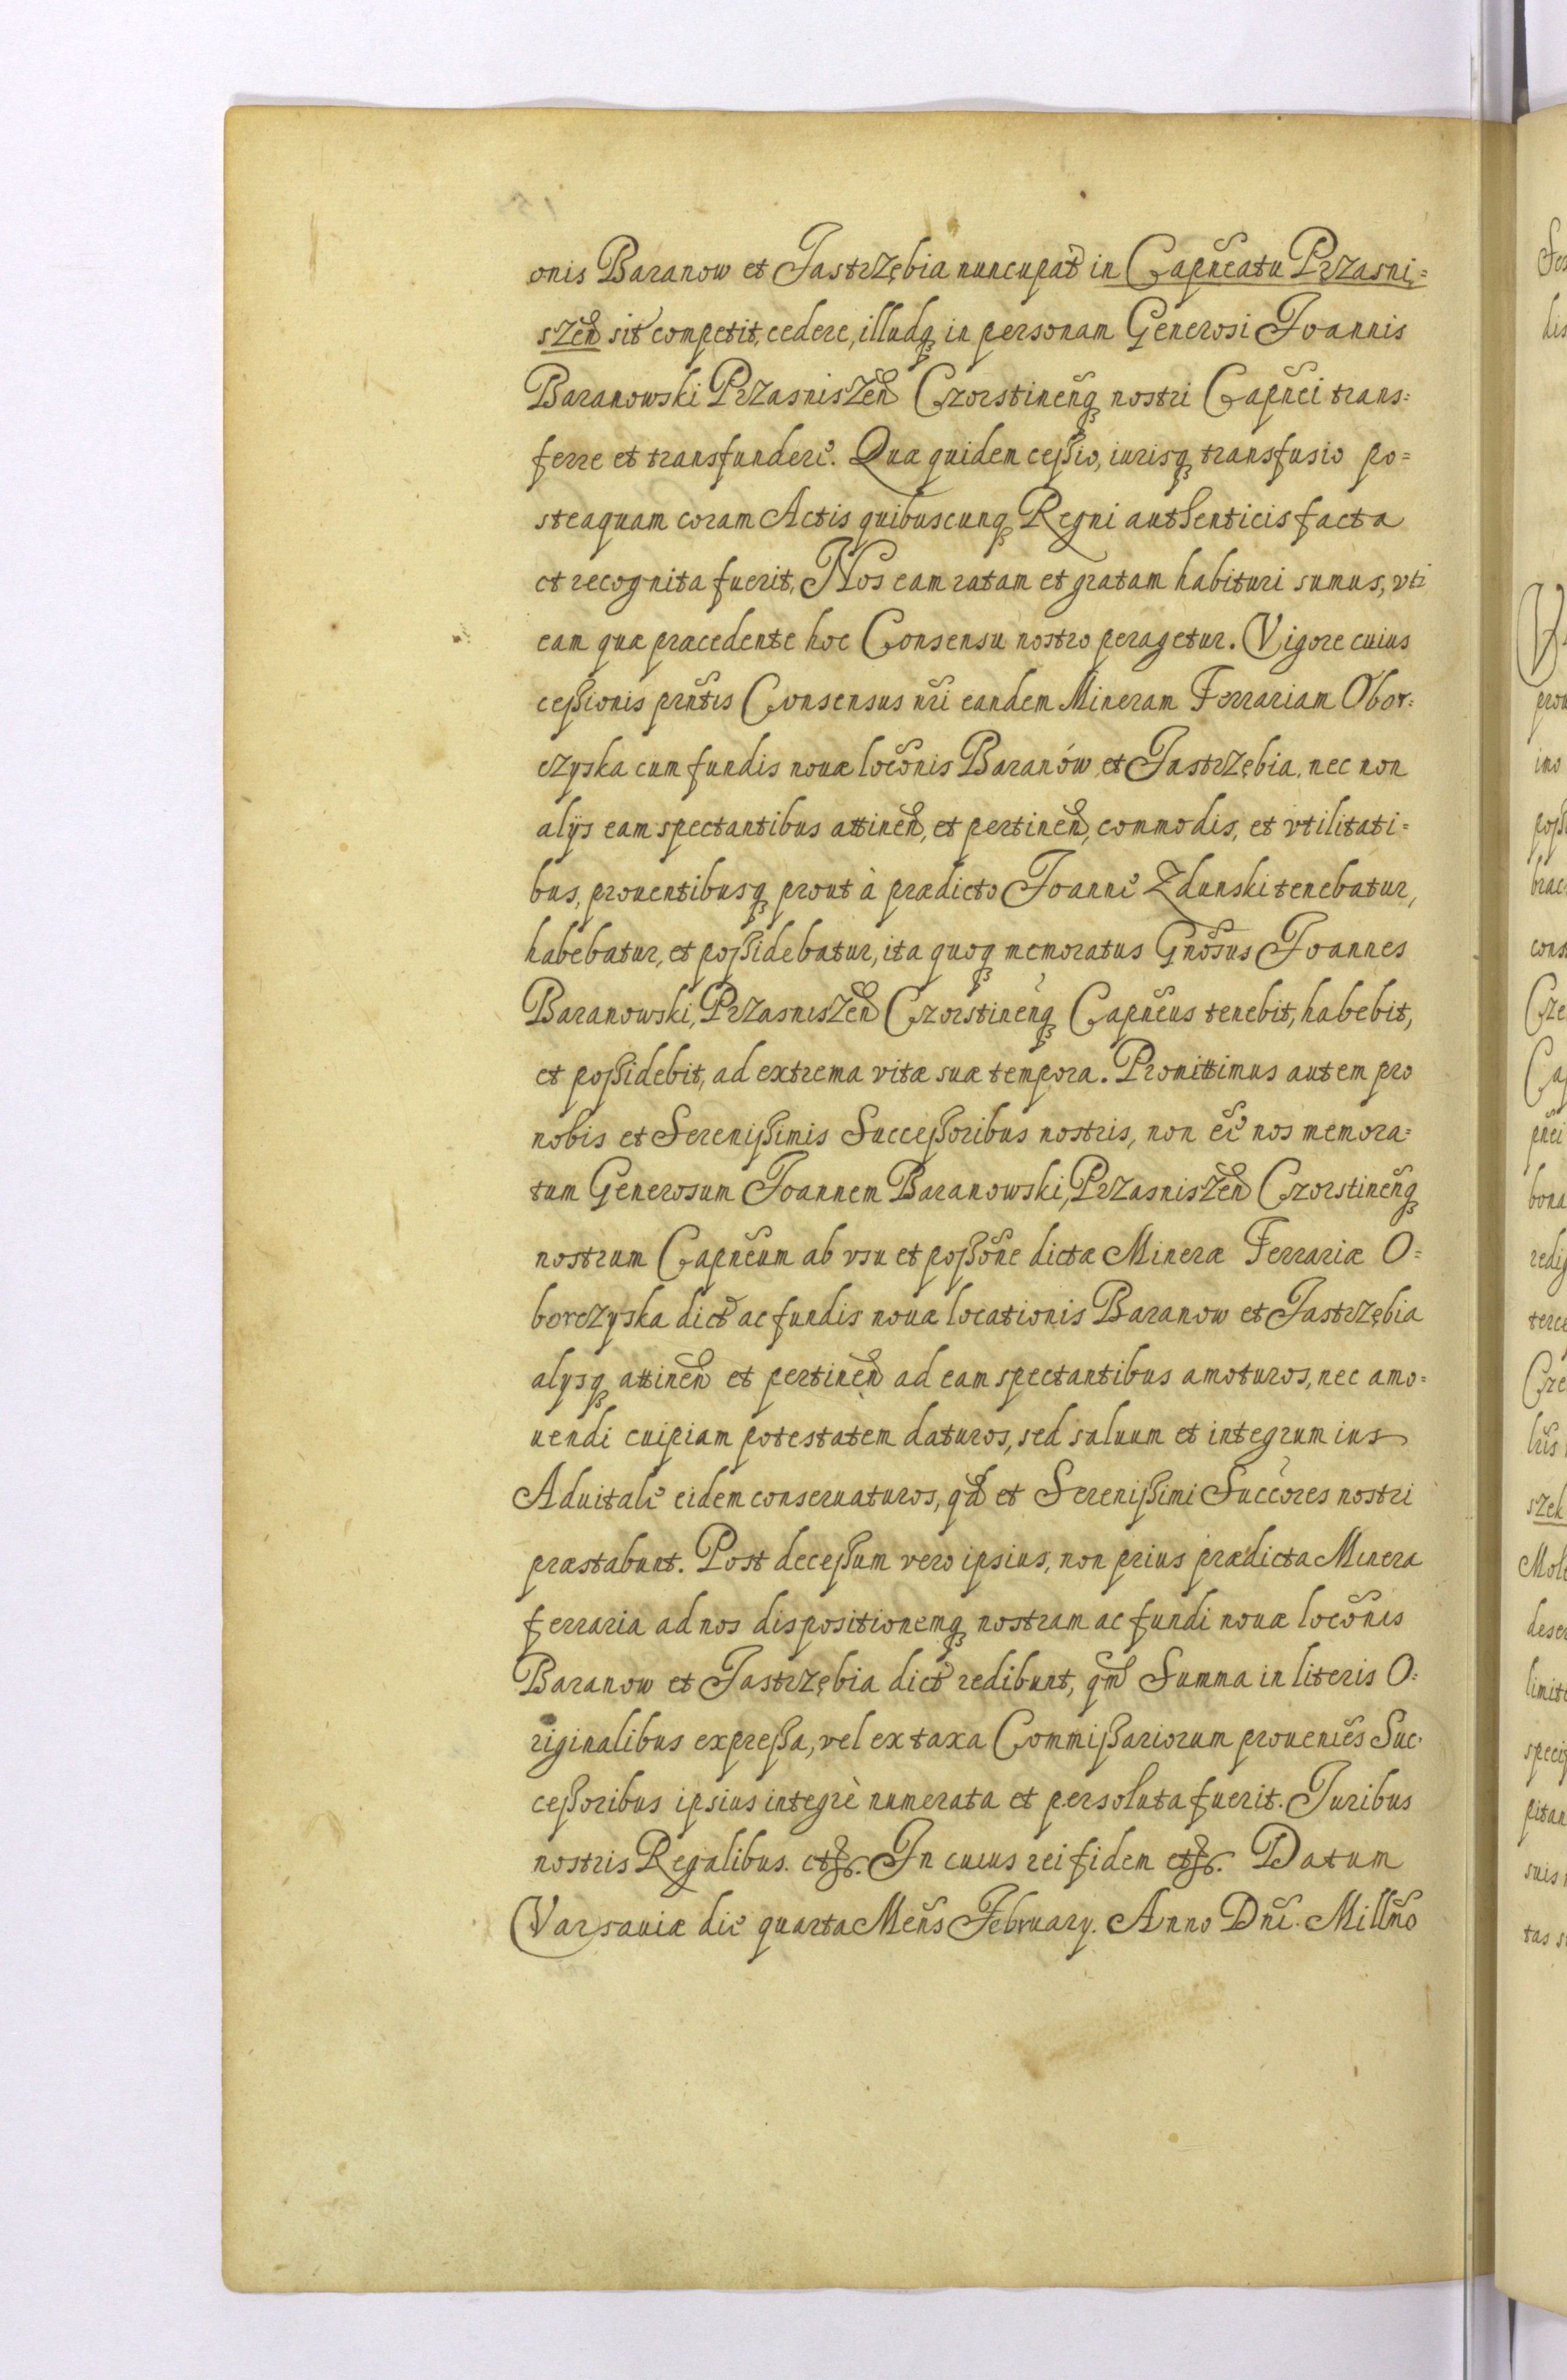 onis Baranow et Jastrzębia nuncupat in Capñeatu Przasni=
szeñ sit competit, cedere, illudq in personam Generosi Joannis
Baranowski Przasniszeñ Czorstineñq nostri Capñei trans=
ferre et transfundere. Quæ quidem ceßio, iurisq transfusio po=
steaquam coram Actis quibuscunq Regni authenticis facta
et recognita fuerit, Nos eam ratam et gratam habituri sumus, vti
eam quæ præcedente hoc Consensu nostro peragetur. Vigore cuius
ceßionis pñtis Consensus ñri eandem Mineram Ferrariam Obor=
czyska cum fundis nouæ locõnis Baranów et Jastrzębia, nec non
alijs eam spectantibus attineñ, et pertineñ, commodis, et vtilitati=
bus, prouentibusq prout à prædicto Joanne Zdunski tenebatur,
habebatur, et poßidebatur, ita quoq memoratus Gñosus Joannes
Baranowski, Przasniszeñ Czorstineñq Capñeus tenebit, habebit,
et poßidebit, ad extrema vitæ suæ tempora. Promittimus autem pro
nobis et Serenißimis Succeßoribus nostris, non eẽ nos memora=
tum Generosum Joannem Baranowski, Przasniszeñ Czorstineñq
nostrum Capñeum ab vsu et poßõne dictæ Mineræ Ferrariæ O=
borczyska dict ac fundis nouæ locationis Baranow et Jastrzębia
alysq attineñ et pertineñ ad eam spectantibus amoturos, nec amo=
uendi cuipiam potestatem daturos, sed saluum et integrum ius
Aduitale eidem conseruaturos, qd et Serenißimi Succores nostri
præstabunt. Post deceßum vero ipsius, non prius prædicta Minera
ferraria ad nos dispositionemq nostram ac fundi nouæ locõnis
Baranow et Jastrzębia dict redibunt, qm Summa in literis O=
riginalibus expreßa, vel ex taxa Commißariorum proueniẽs Suc=
ceßoribus ipsius integrè numerata et persoluta fuerit. Juribus
nostris Regalibus. etc. In cuius rei fidem etc. Datum
Varsauiæ die quarta Meñs February. Anno Dñi. Millño